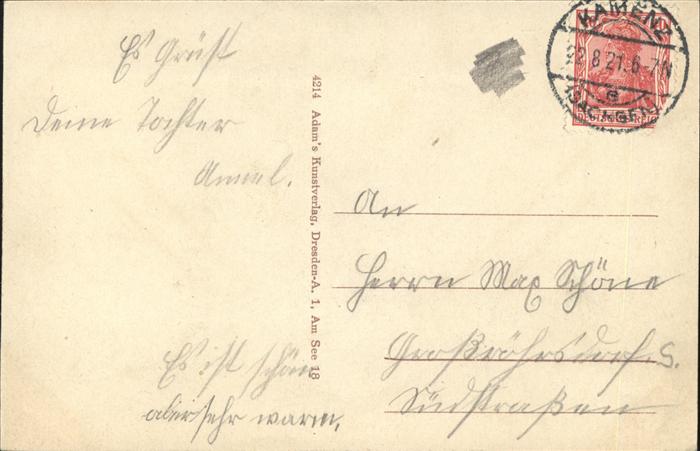 Es Grüst
Deine Tochter
Es ist schön
aber sehr warm.
4214 Adam's Kunstverlag, Dresden-A. 1, Am See 18
KAMENZ
22.8.21.6-7N
a
(SACHSEN)
DEUTSCHES REICH
An
Herrn Max Schöne
Großröhrsdorf i. S.
Südstraßen